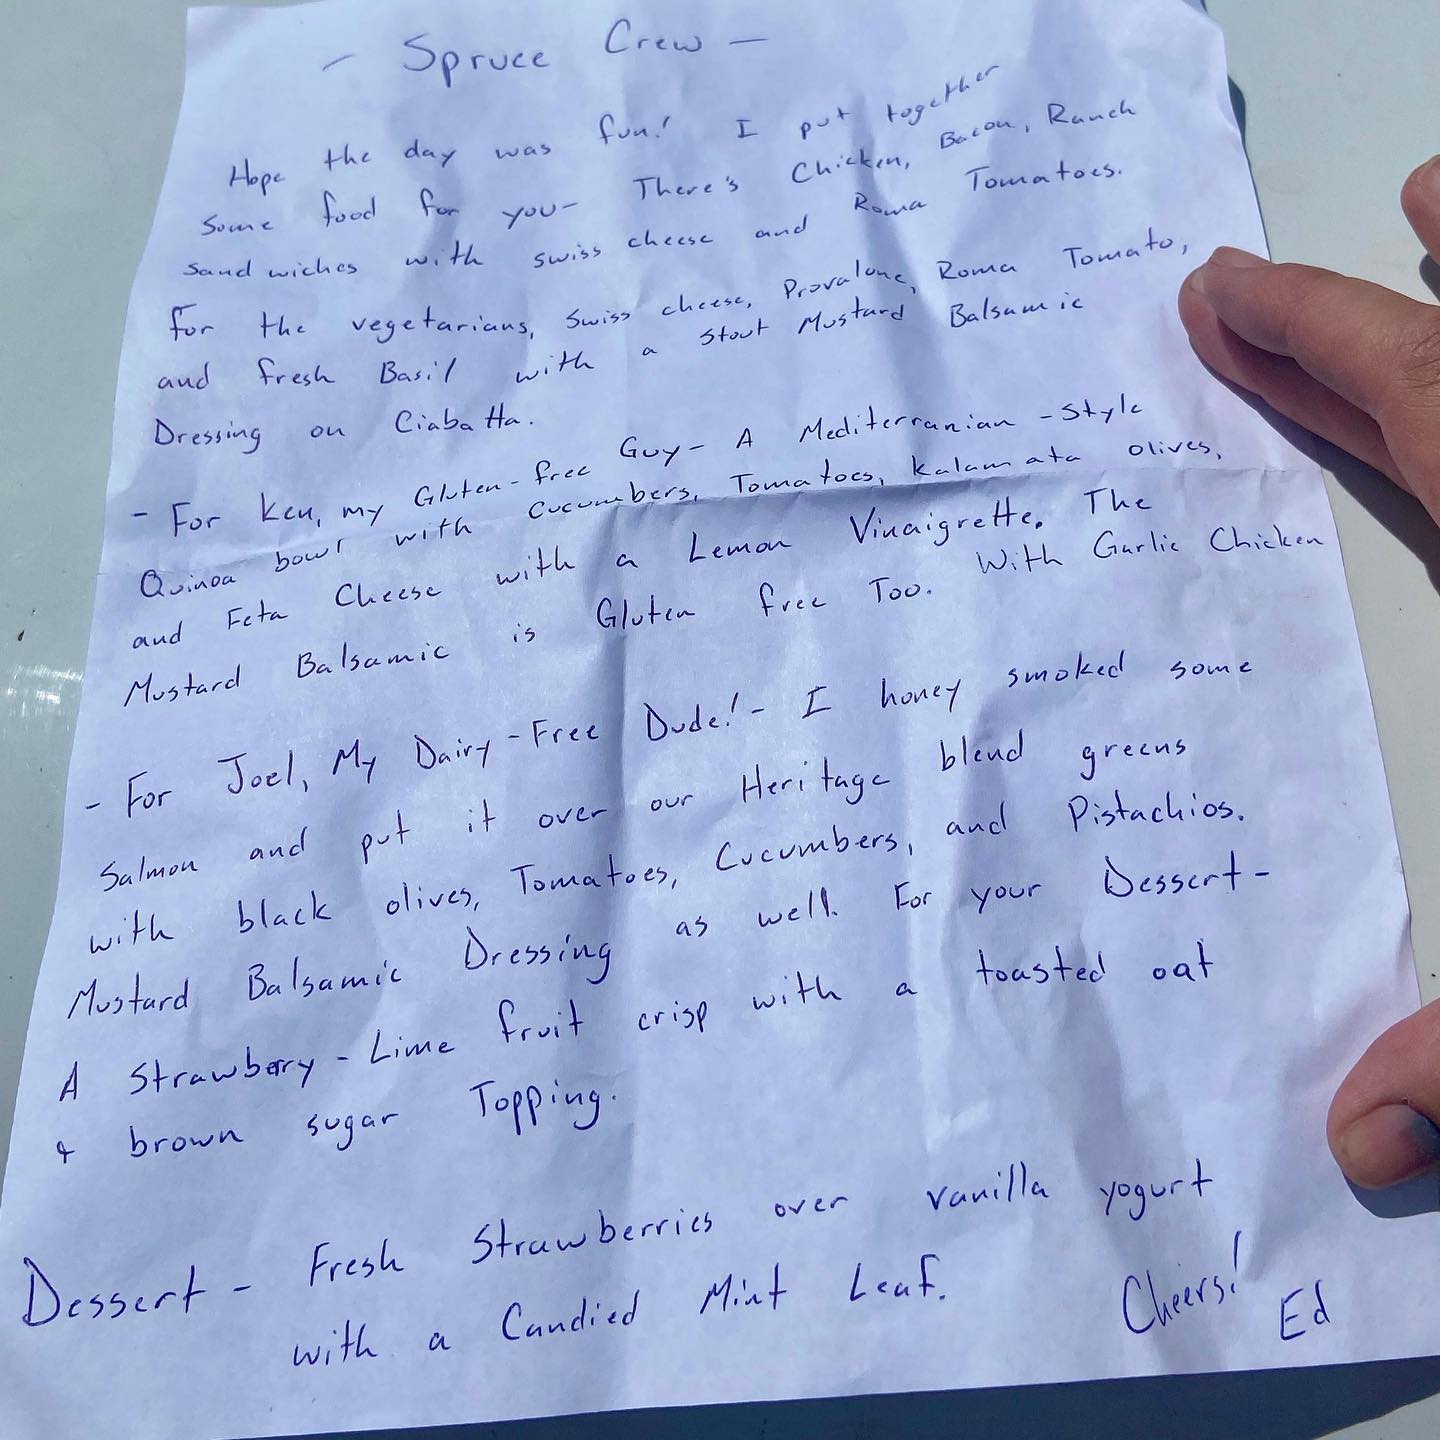 - Spruce Crew -
Hope the day was fun! I put together
some food for you- There's Chicken, Bacon, Ranch
sandwiches with swiss cheese and Roma Tomatoes.
For the vegetarians, swiss cheese, Provalone, Roma Tomato,
and fresh Basil with a stout Mustard Balsamic
Dressing on Ciabatta.
- For Ken, my Gluten-free Guy- A Mediterranian-Style
Quinoa bowl with Cucumbers, Tomatoes, Kalamata olives,
and Feta Cheese with a Lemon Vinaigrette. The
Mustard Balsamic is Gluten free Too. With Garlic Chicken
- For Joel, My Dairy-Free Dude!- I honey smoked some
Salmon and put it over our Heritage blend greens
with black olives, Tomatoes, Cucumbers, and Pistachios.
Mustard Balsamic Dressing as well. For your Dessert-
A Strawberry-Lime fruit crisp with a toasted oat
& brown sugar Topping.
Dessert- Fresh Strawberries over vanilla yogurt
with a Candied Mint Leaf.
Cheers!
Ed